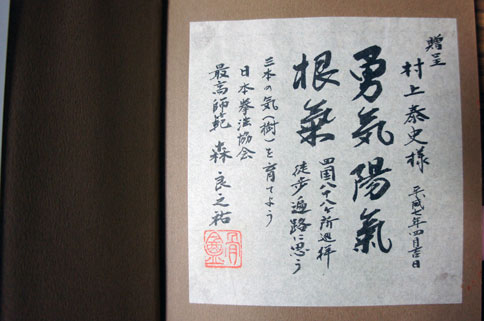 贈呈
村上泰史様
平成七年四月吉日
勇気陽氣
根氣
四国八十八ヶ所巡拝
徒歩遍路に思う
三本の気(樹)を育てよう
日本拳法協会
最高師範 森良之祐